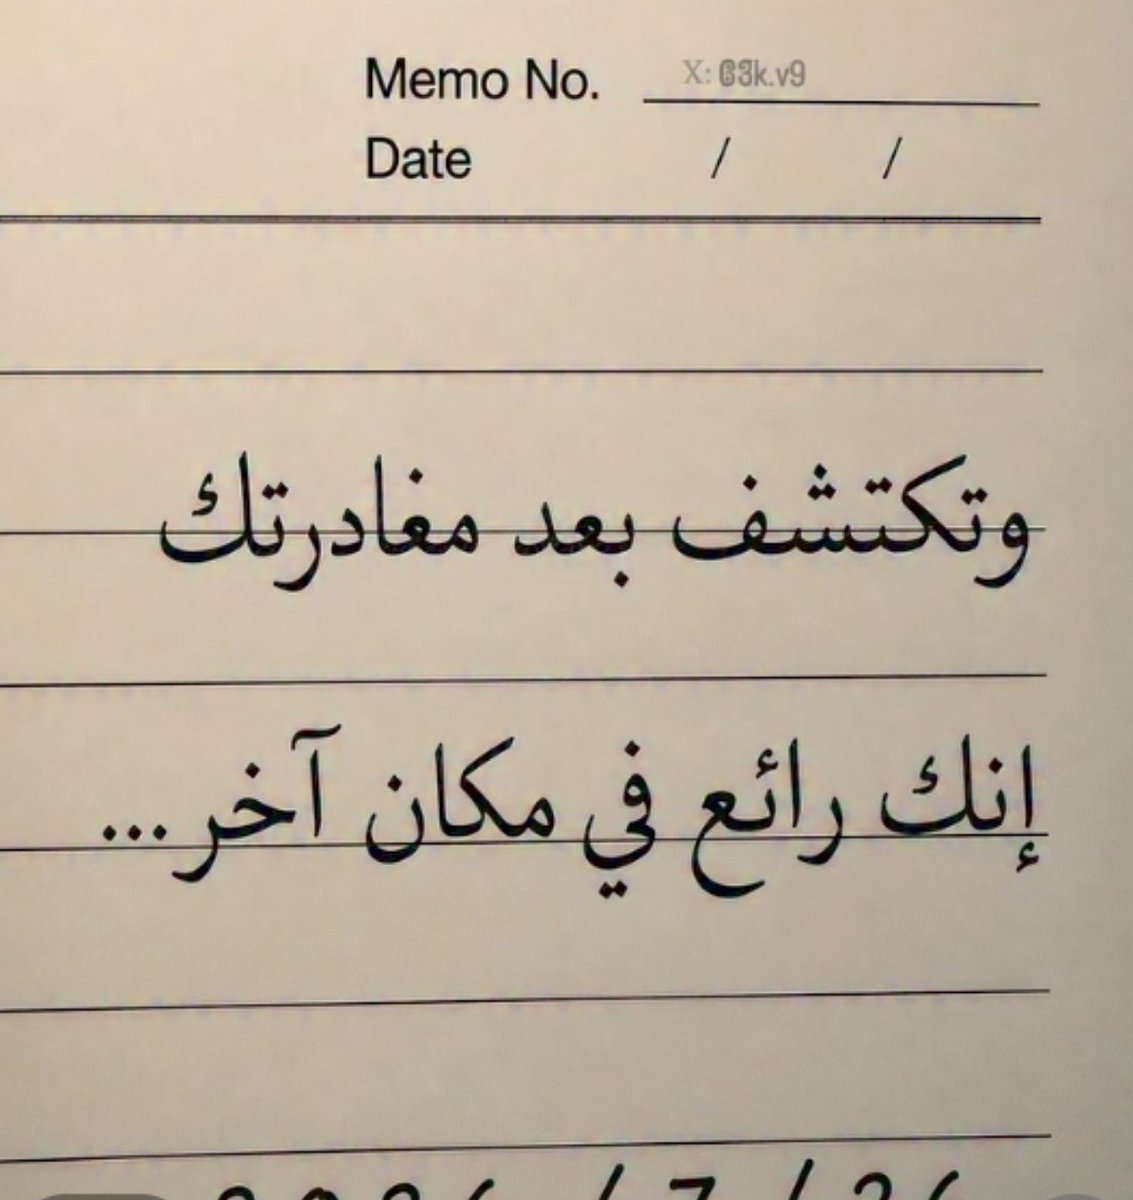 Memo No. X: G3k.v9
Date / /
وتكتشف بعد مغادرتك
إنك رائع في مكان آخر...